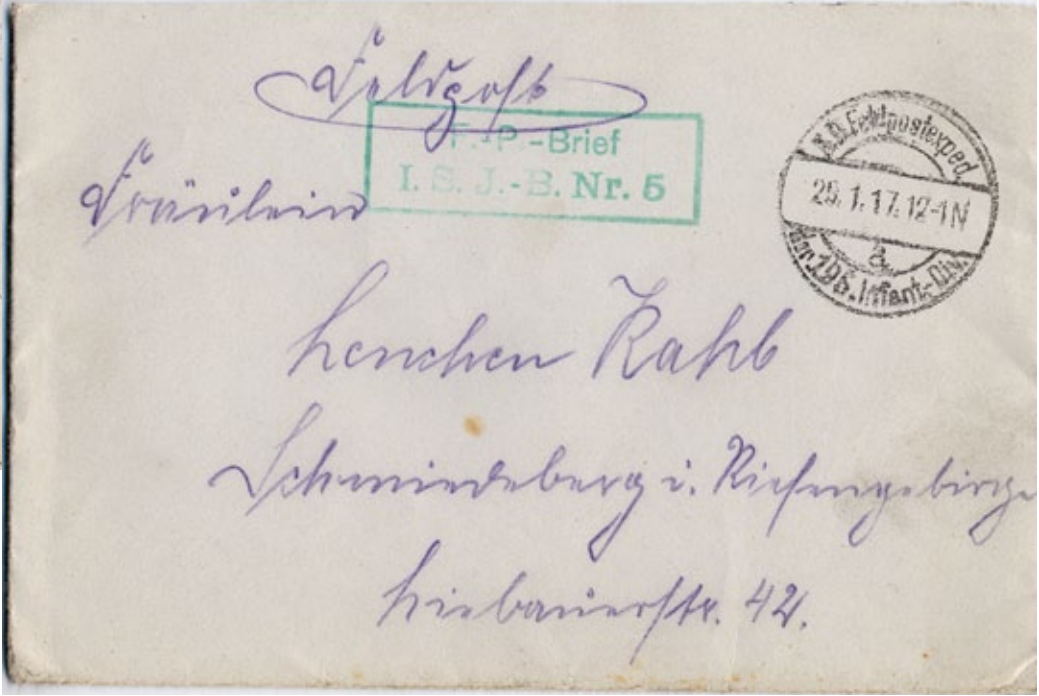 Feldpost
F.-P.-Brief
I. S. J.-B. Nr. 5
K.D. Feldpostexped.
25.1.17.12-1N
a
der 195. Infant.-Div.
Fräulein
Lenchen Rahb
Schmiedeberg i. Riesengebirge
Liebauerstr. 42.